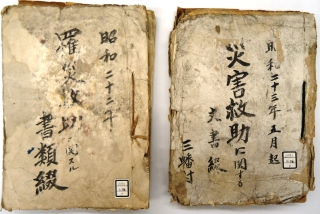 昭和二十二年
羅災救助ニ関スル
書類綴
昭和二十三年五月起
災害救助に関する
文書綴
三幡村